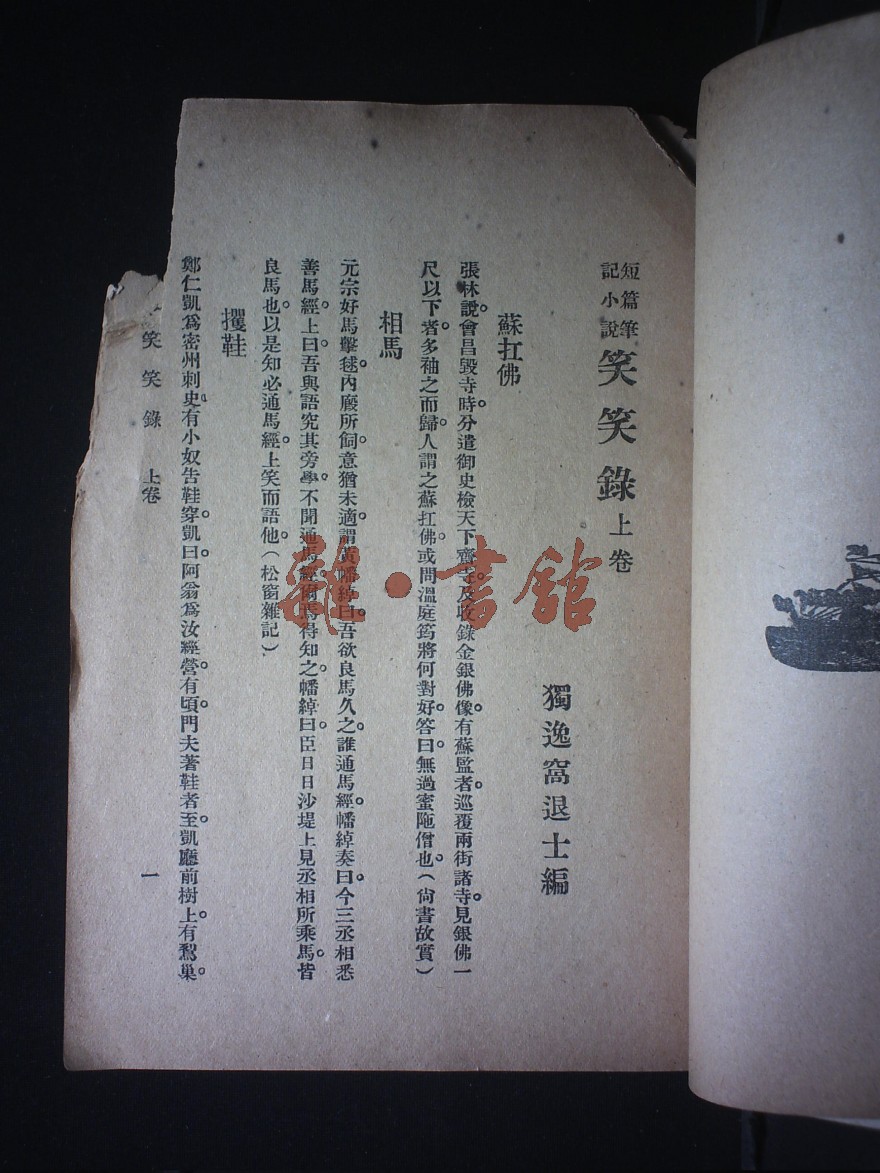 短篇筆
記小說
笑笑錄上卷
獨逸窩退士編
蘇扛佛
張林說。會昌毀寺時。分遣御史檢天下齋寺。及收錄金銀佛像。有蘇監者。巡覆兩街諸寺。見銀佛一
尺以下者。多袖之而歸。人謂之蘇扛佛。或問溫庭筠將何對好。答曰。無過蜜陁僧也。(尙書故實)
相馬
元宗好馬擊毬。內廐所飼。意猶未適。謂黃幡綽曰。吾欲良馬久之。誰通馬經。幡綽奏曰。今三丞相悉
善馬經。上曰。吾與語究其旁學。不聞通馬經。爾焉得知之。幡綽曰。臣日日沙堤上見丞相所乘馬。皆
良馬也。以是知必通馬經。上笑而語他。(松窗雜記)
攫鞋
鄭仁凱爲密州刺史。有小奴吿鞋穿。凱曰。阿翁爲汝經營。有頃。門夫著鞋者至。凱廳前樹上有鴷巢。
笑笑錄 上卷
一
雜·書館